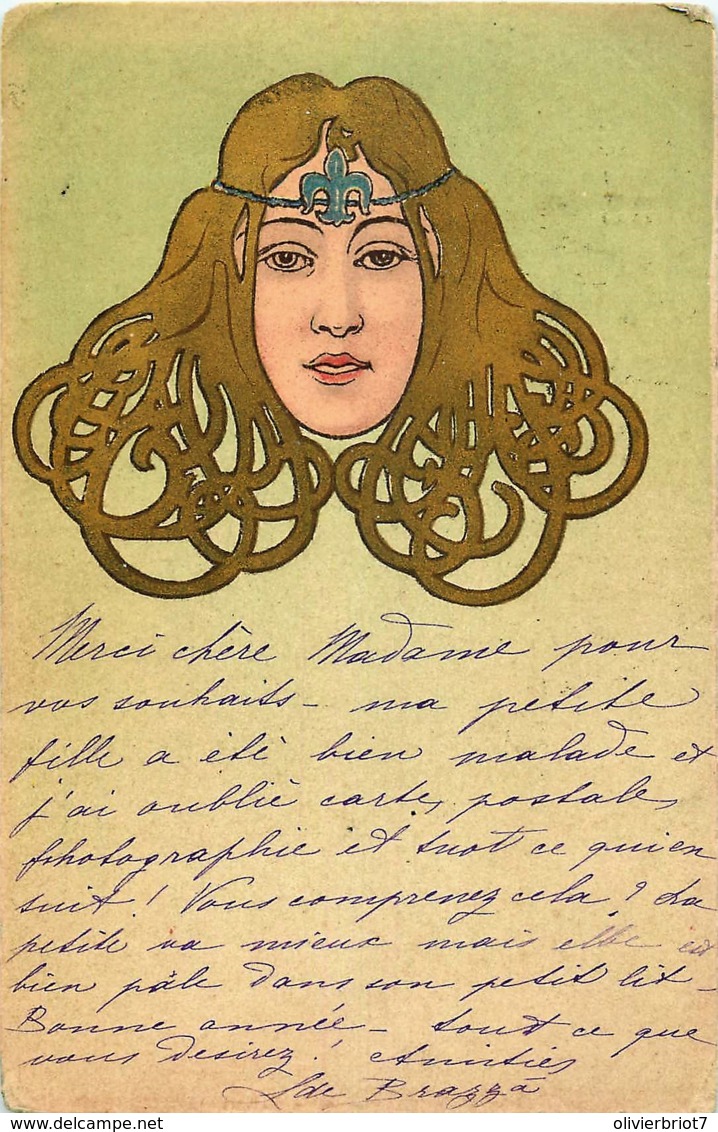 Merci chère Madame pour
vos souhaits - ma petite
fille a été bien malade et
j'ai oublié cartes postales,
photographie et tuot ce qui en
suit! Vous comprenez cela? La
petite va mieux mais elle est
bien pâle dans son petit lit -
Bonne année - tout ce que
vous desirez! Amitiés
de Brazzà
olivierbriot7